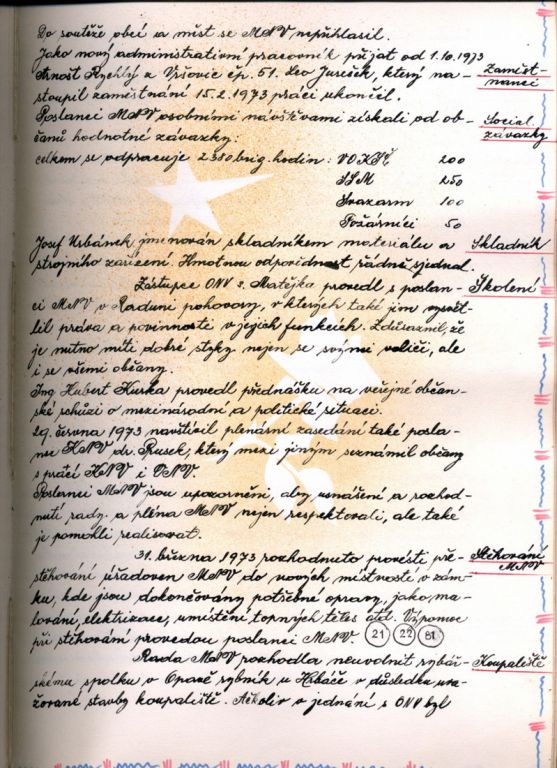 Do soutěže obcí a měst se MNV nepřihlasil.
Jako nový administrativní pracovník přijat od 1.10.1973
Arnošt Rychlý z Vršovic čp. 51. Leo Jureček, který na-
stoupil zaměstnání 15.2.1973 práci ukončil.
Zaměst-
nanci
Poslanci MNV osobními návštěvami získali od ob-
čanů hodnotné závazky:
Social.
závazky
celkem se odpracuje 2380 brig. hodin: VOKSČ 200
SSM 250
Svazarm 100
Požárníci 50
Josef Urbánek jmenován skladníkem materiálu a
strojního zařízení. Hmotnou odpovídnost řádně sjednal.
Skladník
Zástupce ONV s. Matějka provedl s poslan-
ci MNV v Raduni pohovory, v kterých také jim vysvět-
lil práva a povinnosti v jejich funkcích. Zdůraznil, že
je nutno míti dobré styky nejen se svými voliči, ale
i se všemi občany.
Školení
Ing Hubert Kurka provedl přednášku na veřejné občan-
ské schůzi o mezinárodní a politické situaci.
29. června 1973 navštívil plenární zasedání také posla-
nec KNV dr. Rusek, který mezi jiným seznámil občany
s prací KNV i ONV.
Poslanci MNV jsou upozorněni, aby usnášení a rozhod-
nutí rady a pléna MNV nejen respektovali, ale také
je pomohli realisovat.
31. března 1973 rozhodnuto provésti pře-
stěhování úřadoven MNV do nových místností v zám-
ku, kde jsou dokončovány potřebné opravy, jako, ma-
lování, elektrizace, umístění topných těles atd. Výpomoc
při stěhování provedou poslanci MNV. 21 22 81
Stěhování
MNV
Rada MNV rozhodla neuvolnit rybář-
skému spolku v Opavě rybník u Hrbáče v důsledku uva-
žované stavby koupaliště. Ačkoliv v jednání s ONV byl
Koupaliště